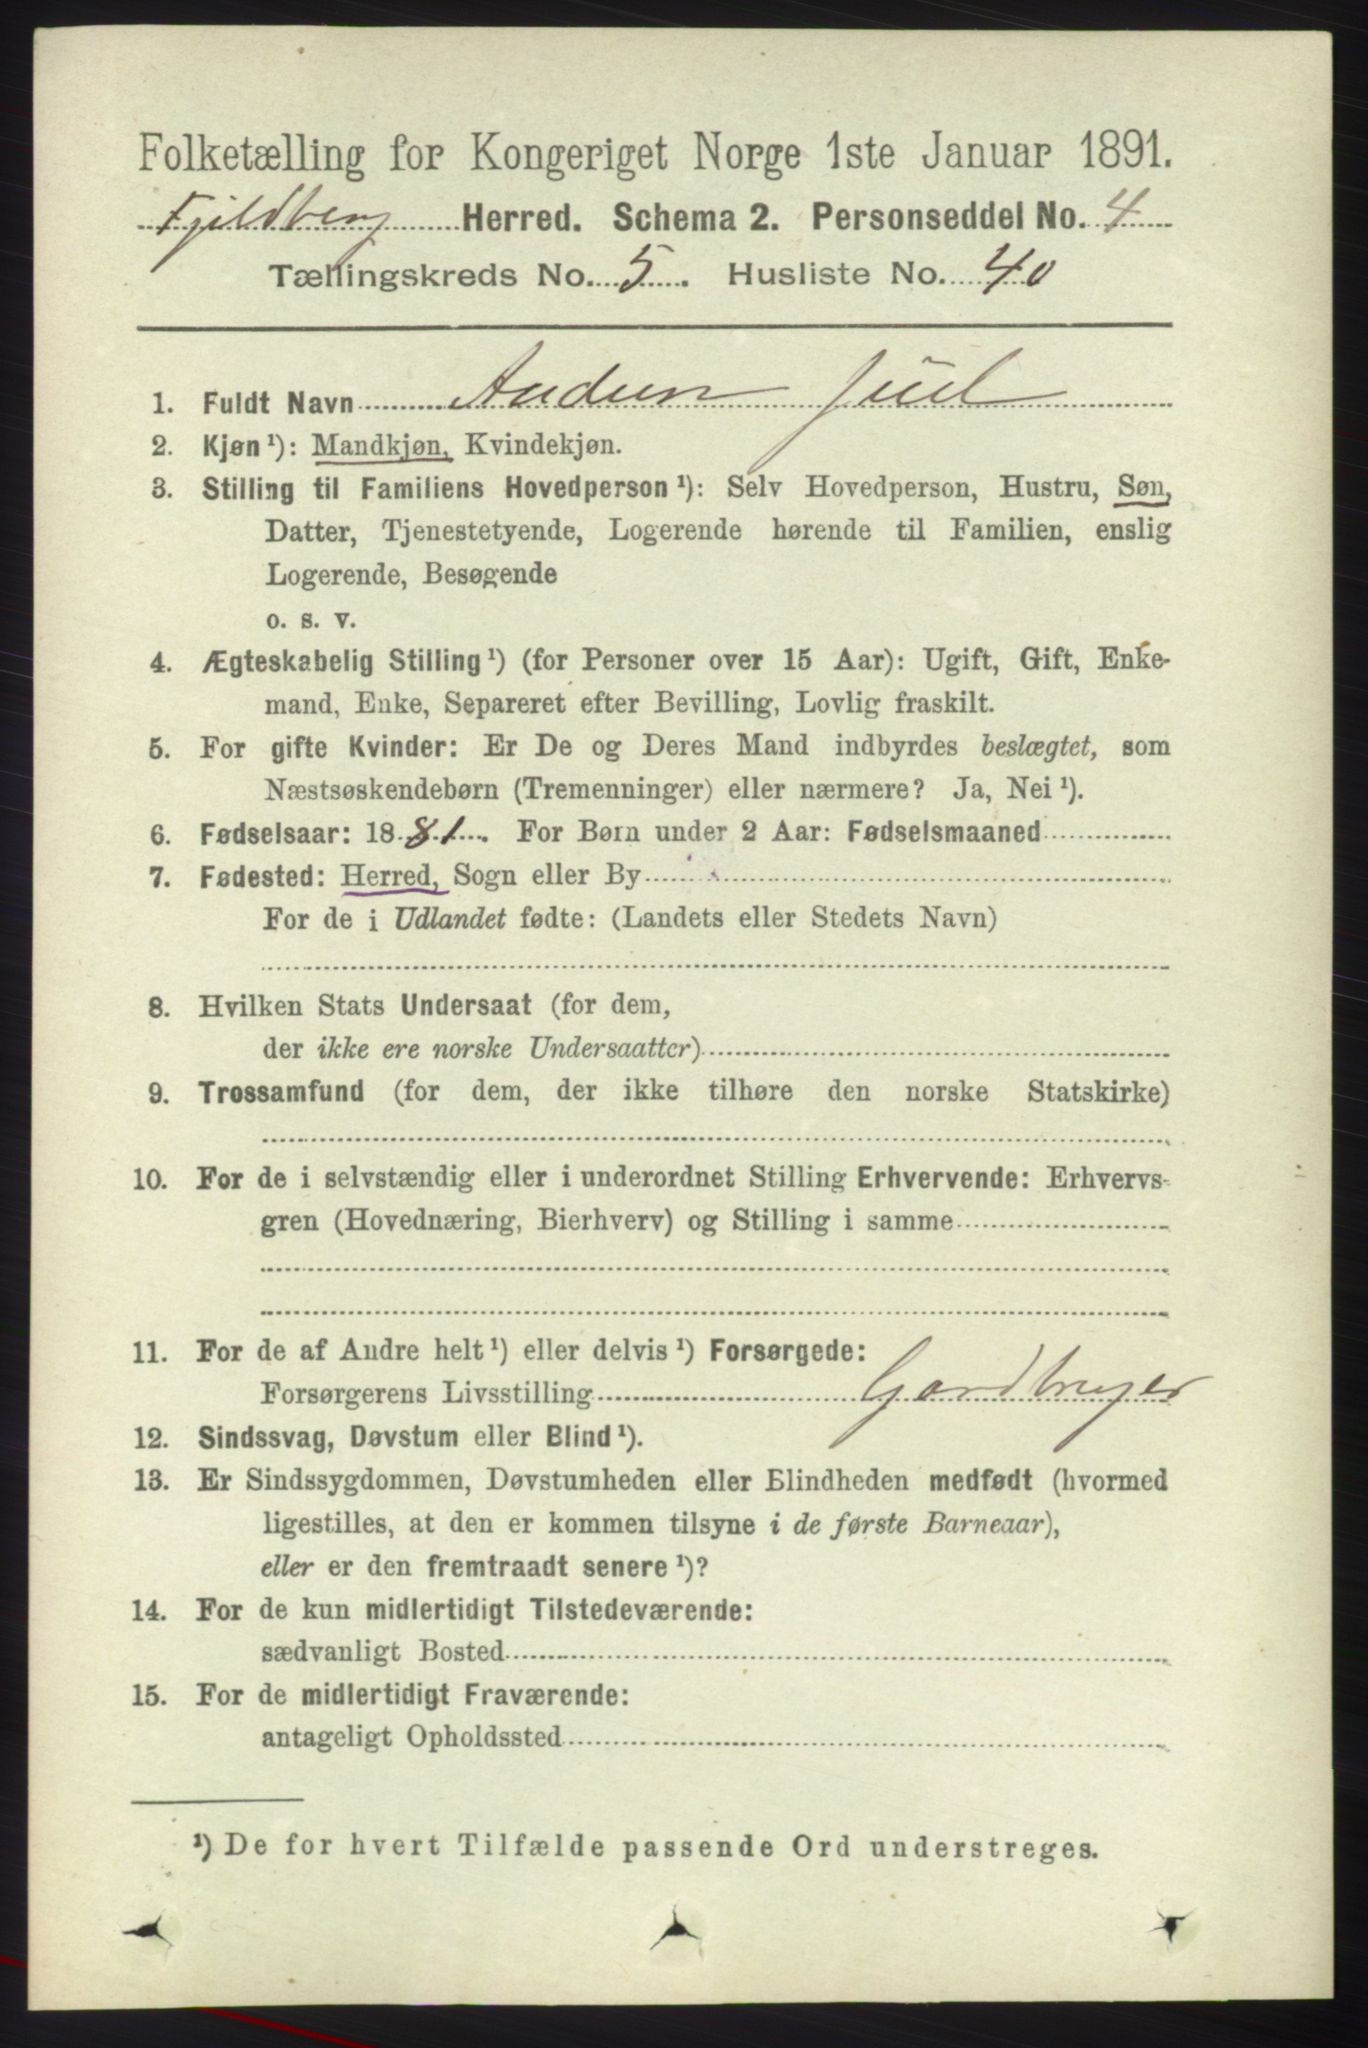 Folketælling for Kongeriget Norge 1ste Januar 1891.
Fjeldberg Herred. Schema 2. Personseddel No. 4
Tællingskreds No. 5. Husliste No. 40
1. Fuldt Navn Audun Juul
2. Kjøn ¹): Mandkjøn, Kvindekjøn.
3. Stilling til Familiens Hovedperson ¹): Selv Hovedperson, Hustru, Søn,
Datter, Tjenestetyende, Logerende hørende til Familien, enslig
Logerende, Besøgende
o. s. v.
4. Ægteskabelig Stilling ¹) (for Personer over 15 Aar): Ugift, Gift, Enke-
mand, Enke, Separeret efter Bevilling, Lovlig fraskilt.
5. For gifte Kvinder: Er De og Deres Mand indbyrdes beslægtet, som
Næstsøskendebørn (Tremenninger) eller nærmere? Ja, Nei ¹).
6. Fødselsaar: 1881. For Børn under 2 Aar: Fødselsmaaned
7. Fødested: Herred, Sogn eller By
For de i Udlandet fødte: (Landets eller Stedets Navn)
8. Hvilken Stats Undersaat (for dem,
der ikke ere norske Undersaatter)
9. Trossamfund (for dem, der ikke tilhøre den norske Statskirke)
10. For de i selvstændig eller i underordnet Stilling Erhvervende: Erhvervs-
gren (Hovednæring, Bierhverv) og Stilling i samme
11. For de af Andre helt ¹) eller delvis ¹) Forsørgede:
Forsørgerens Livsstilling Gardbruger
12. Sindssvag, Døvstum eller Blind ¹).
13. Er Sindssygdommen, Døvstumheden eller Blindheden medfødt (hvormed
ligestilles, at den er kommen tilsyne i de første Barneaar),
eller er den fremtraadt senere ¹)?
14. For de kun midlertidigt Tilstedeværende:
sædvanligt Bosted
15. For de midlertidigt Fraværende:
antageligt Opholdssted
¹) De for hvert Tilfælde passende Ord understreges.